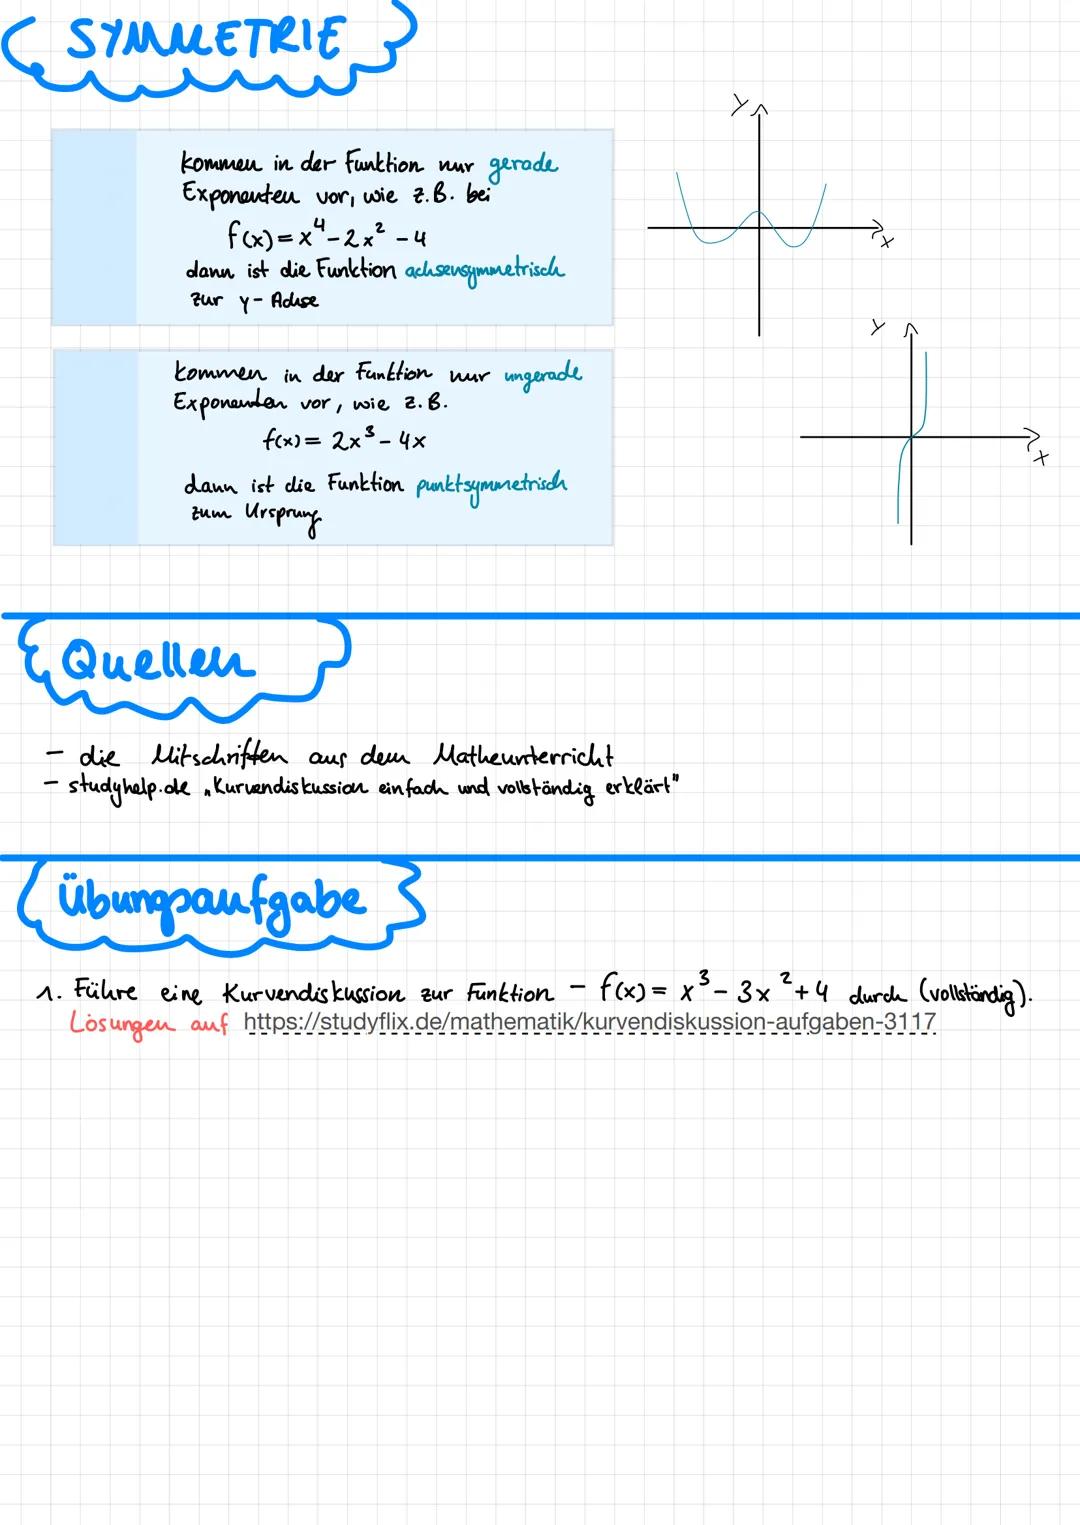 SYMMETRIE
kommen in der Funktion nur gerade
Exponenten vor, wie z.B. bei
f(x) = x⁴ - 2x² - 4
dann ist die Funktion achsensymmetrisch
zur y-Achse
y
x
kommen in der Funktion nur ungerade
Exponenten vor, wie z.B.
f(x) = 2x³ - 4x
dann ist die Funktion punktsymmetrisch
zum Ursprung
y
x
Quellen
- die Mitschriften aus dem Matheunterricht
- studyhelp.de „Kurvendiskussion einfach und vollständig erklärt"
Übungsaufgabe
1. Führe eine Kurvendiskussion zur Funktion - f(x) = x³ - 3x² + 4 durch (vollständig).
Lösungen auf https://studyflix.de/mathematik/kurvendiskussion-aufgaben-3117